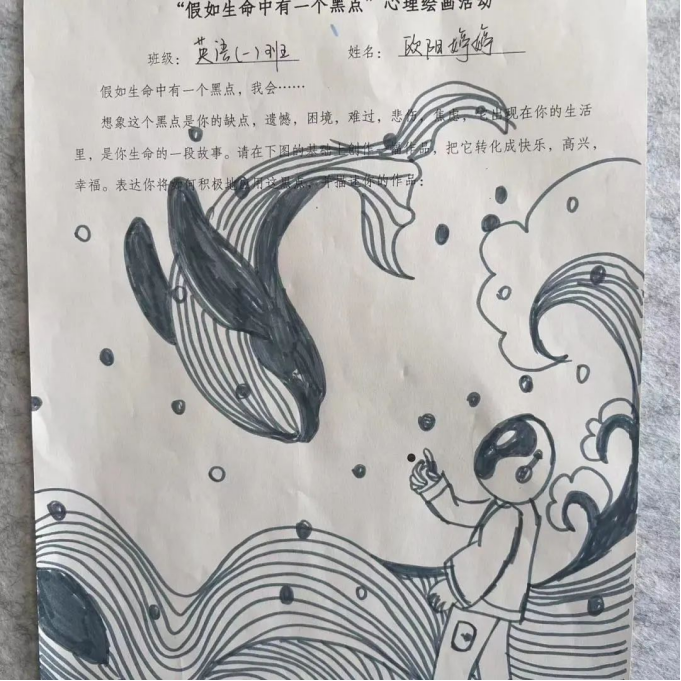 “假如生命中有一个黑点”心理绘画活动
班级：英语(一)班 姓名：欧阳婷婷
假如生命中有一个黑点，我会……
想象这个黑点是你的缺点，遗憾，困境，难过，悲伤，焦虑，它出现在你的生活
里，是你生命的一段故事。请在下图的基础上创作一幅作品，把它转化成快乐，高兴，
幸福。表达你将如何积极地应用这黑点，并描述你的作品：